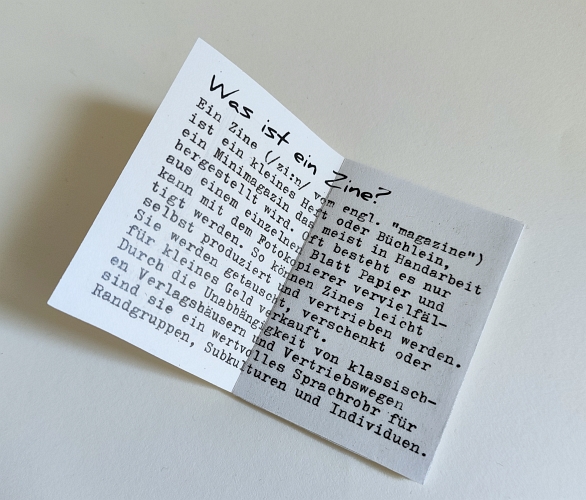 Was ist ein Zine?
Ein Zine (/ziːn/ vom engl. "magazine")
ist ein kleines Heft oder Büchlein,
ein Minimagazin das meist in Handarbeit
hergestellt wird. Oft besteht es nur
aus einem einzelnen Blatt Papier und
kann mit dem Fotokopierer vervielfäl-
tigt werden. So können Zines leicht
selbst produziert und vertrieben werden.
Sie werden getauscht, verschenkt oder
für kleines Geld verkauft.
Durch die Unabhängigkeit von klassisch-
en Verlagshäusern und Vertriebswegen
sind sie ein wertvolles Sprachrohr für
Randgruppen, Subkulturen und Individuen.